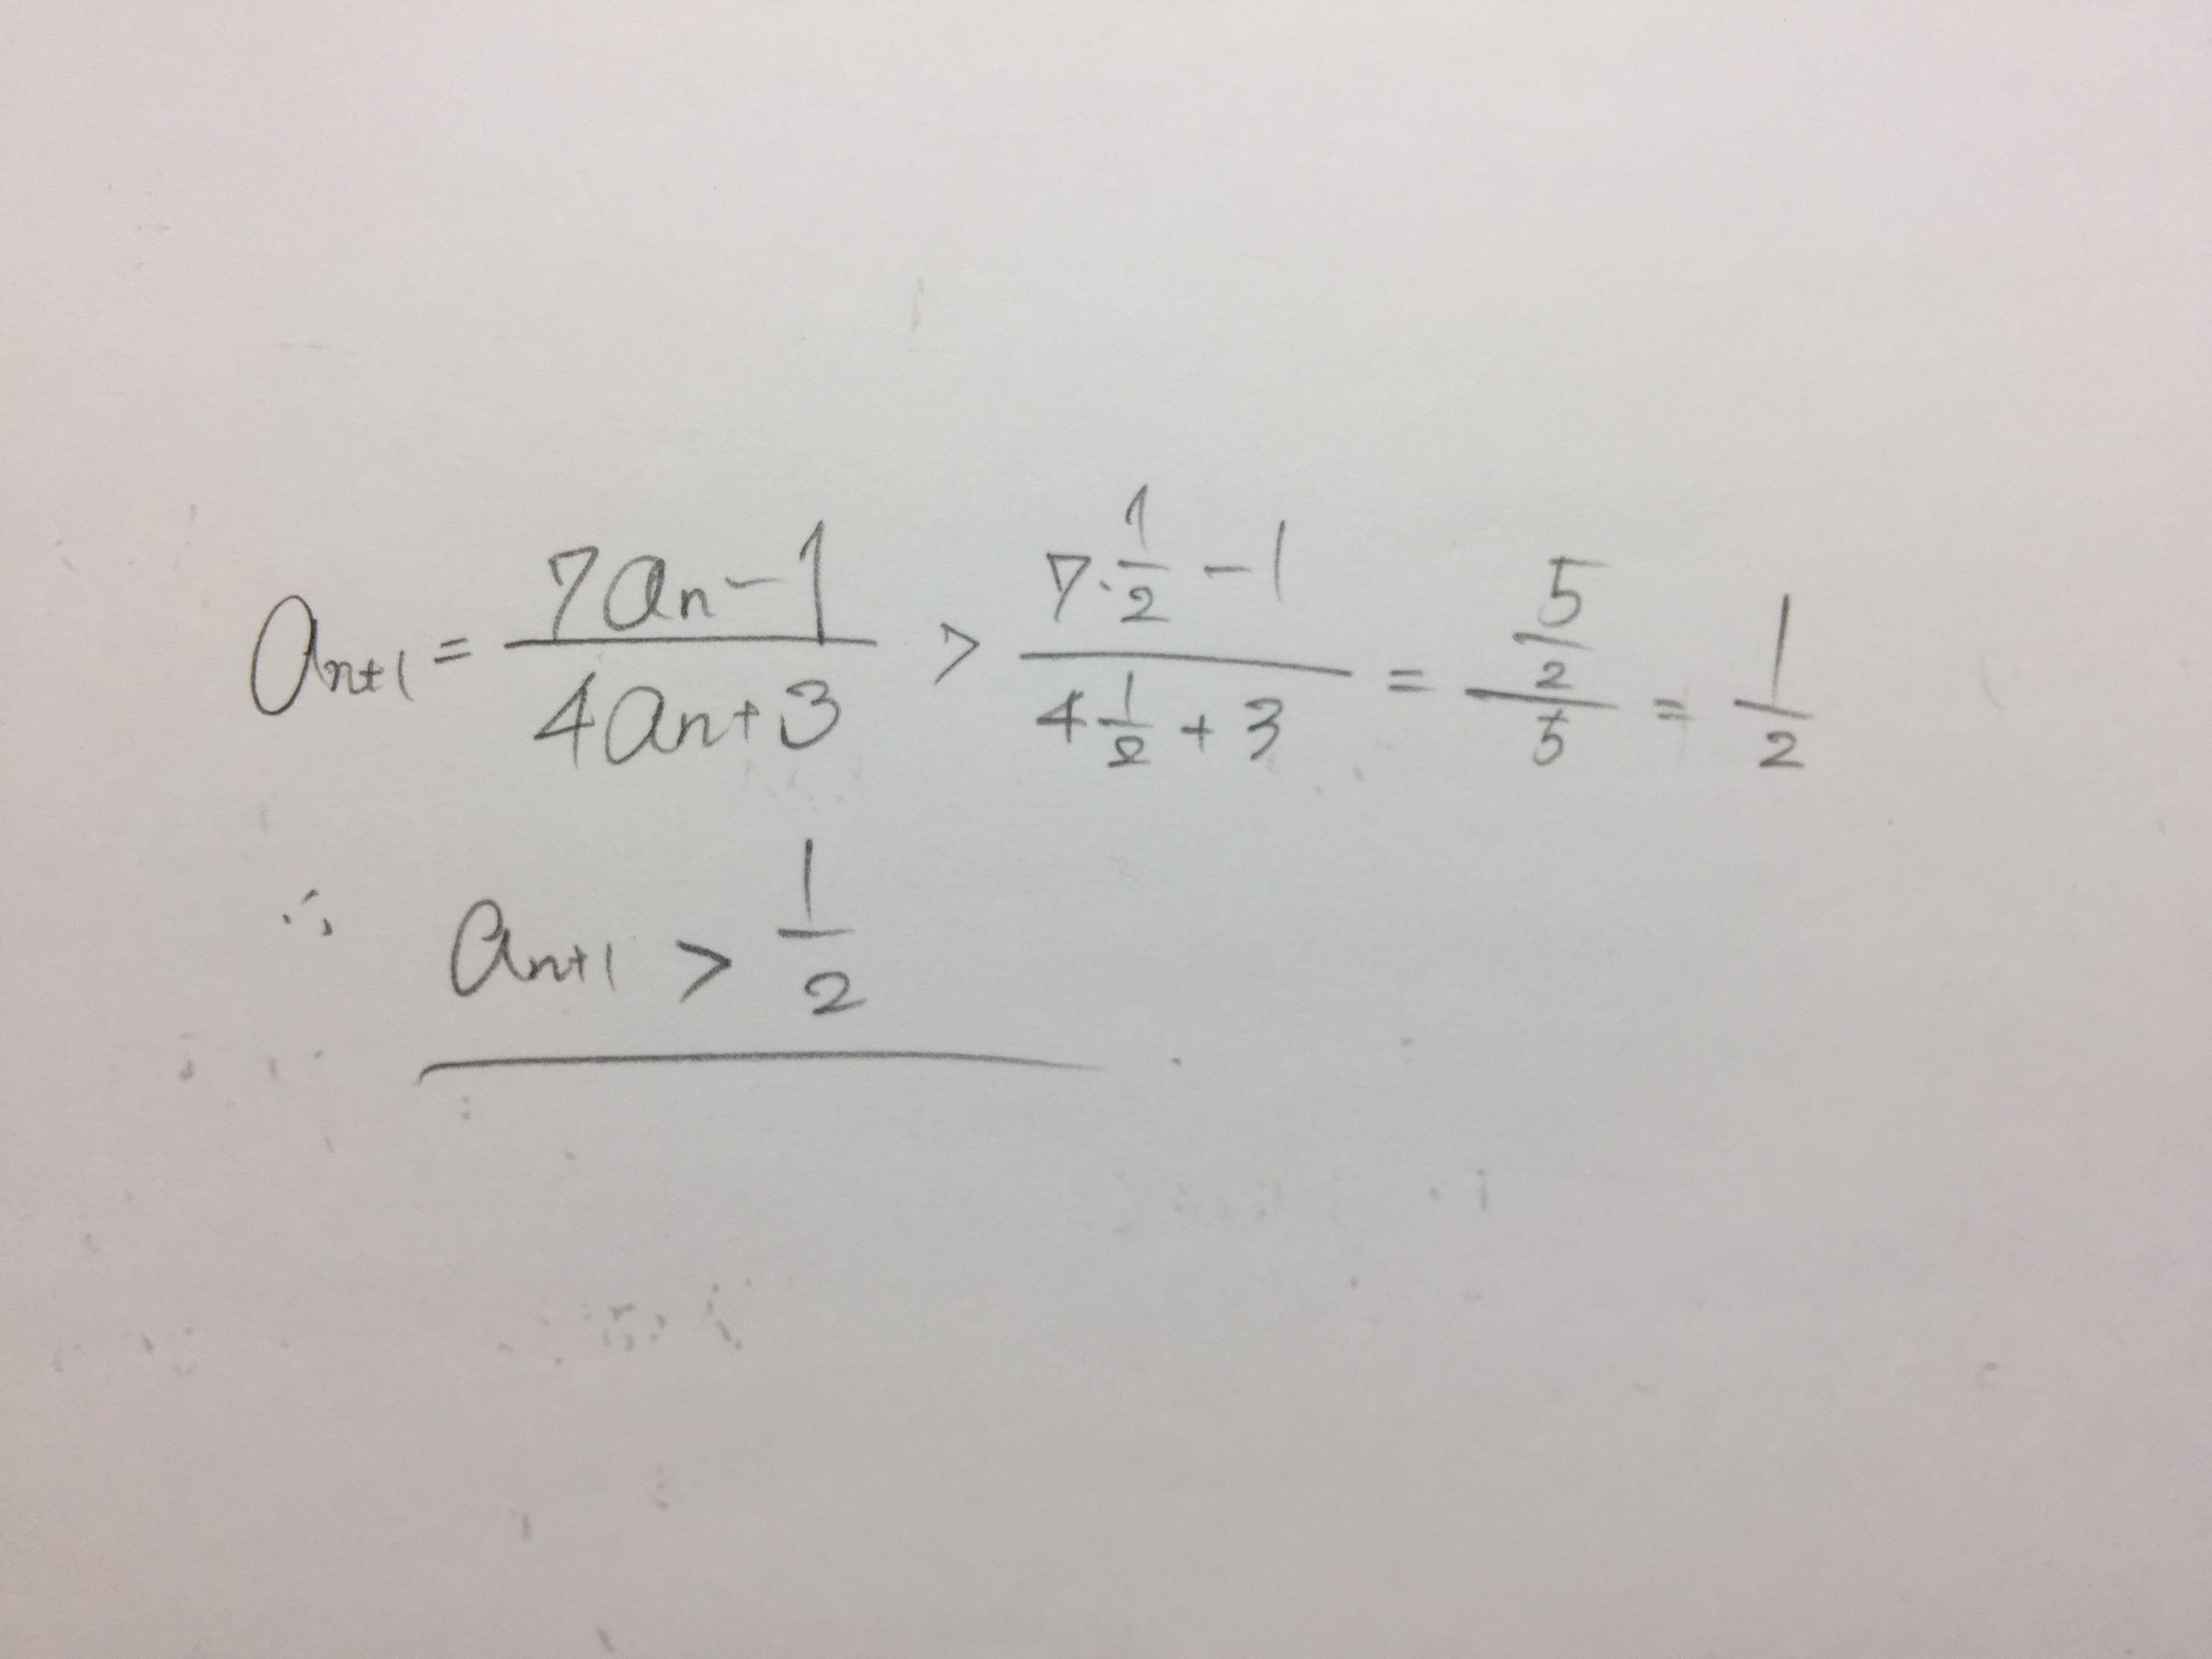 a_{n+1} = \frac{7a_n - 1}{4a_n + 3} > \frac{7 \cdot \frac{1}{2} - 1}{4 \frac{1}{2} + 3} = \frac{\frac{5}{2}}{5} = \frac{1}{2}
∴ a_{n+1} > \frac{1}{2}